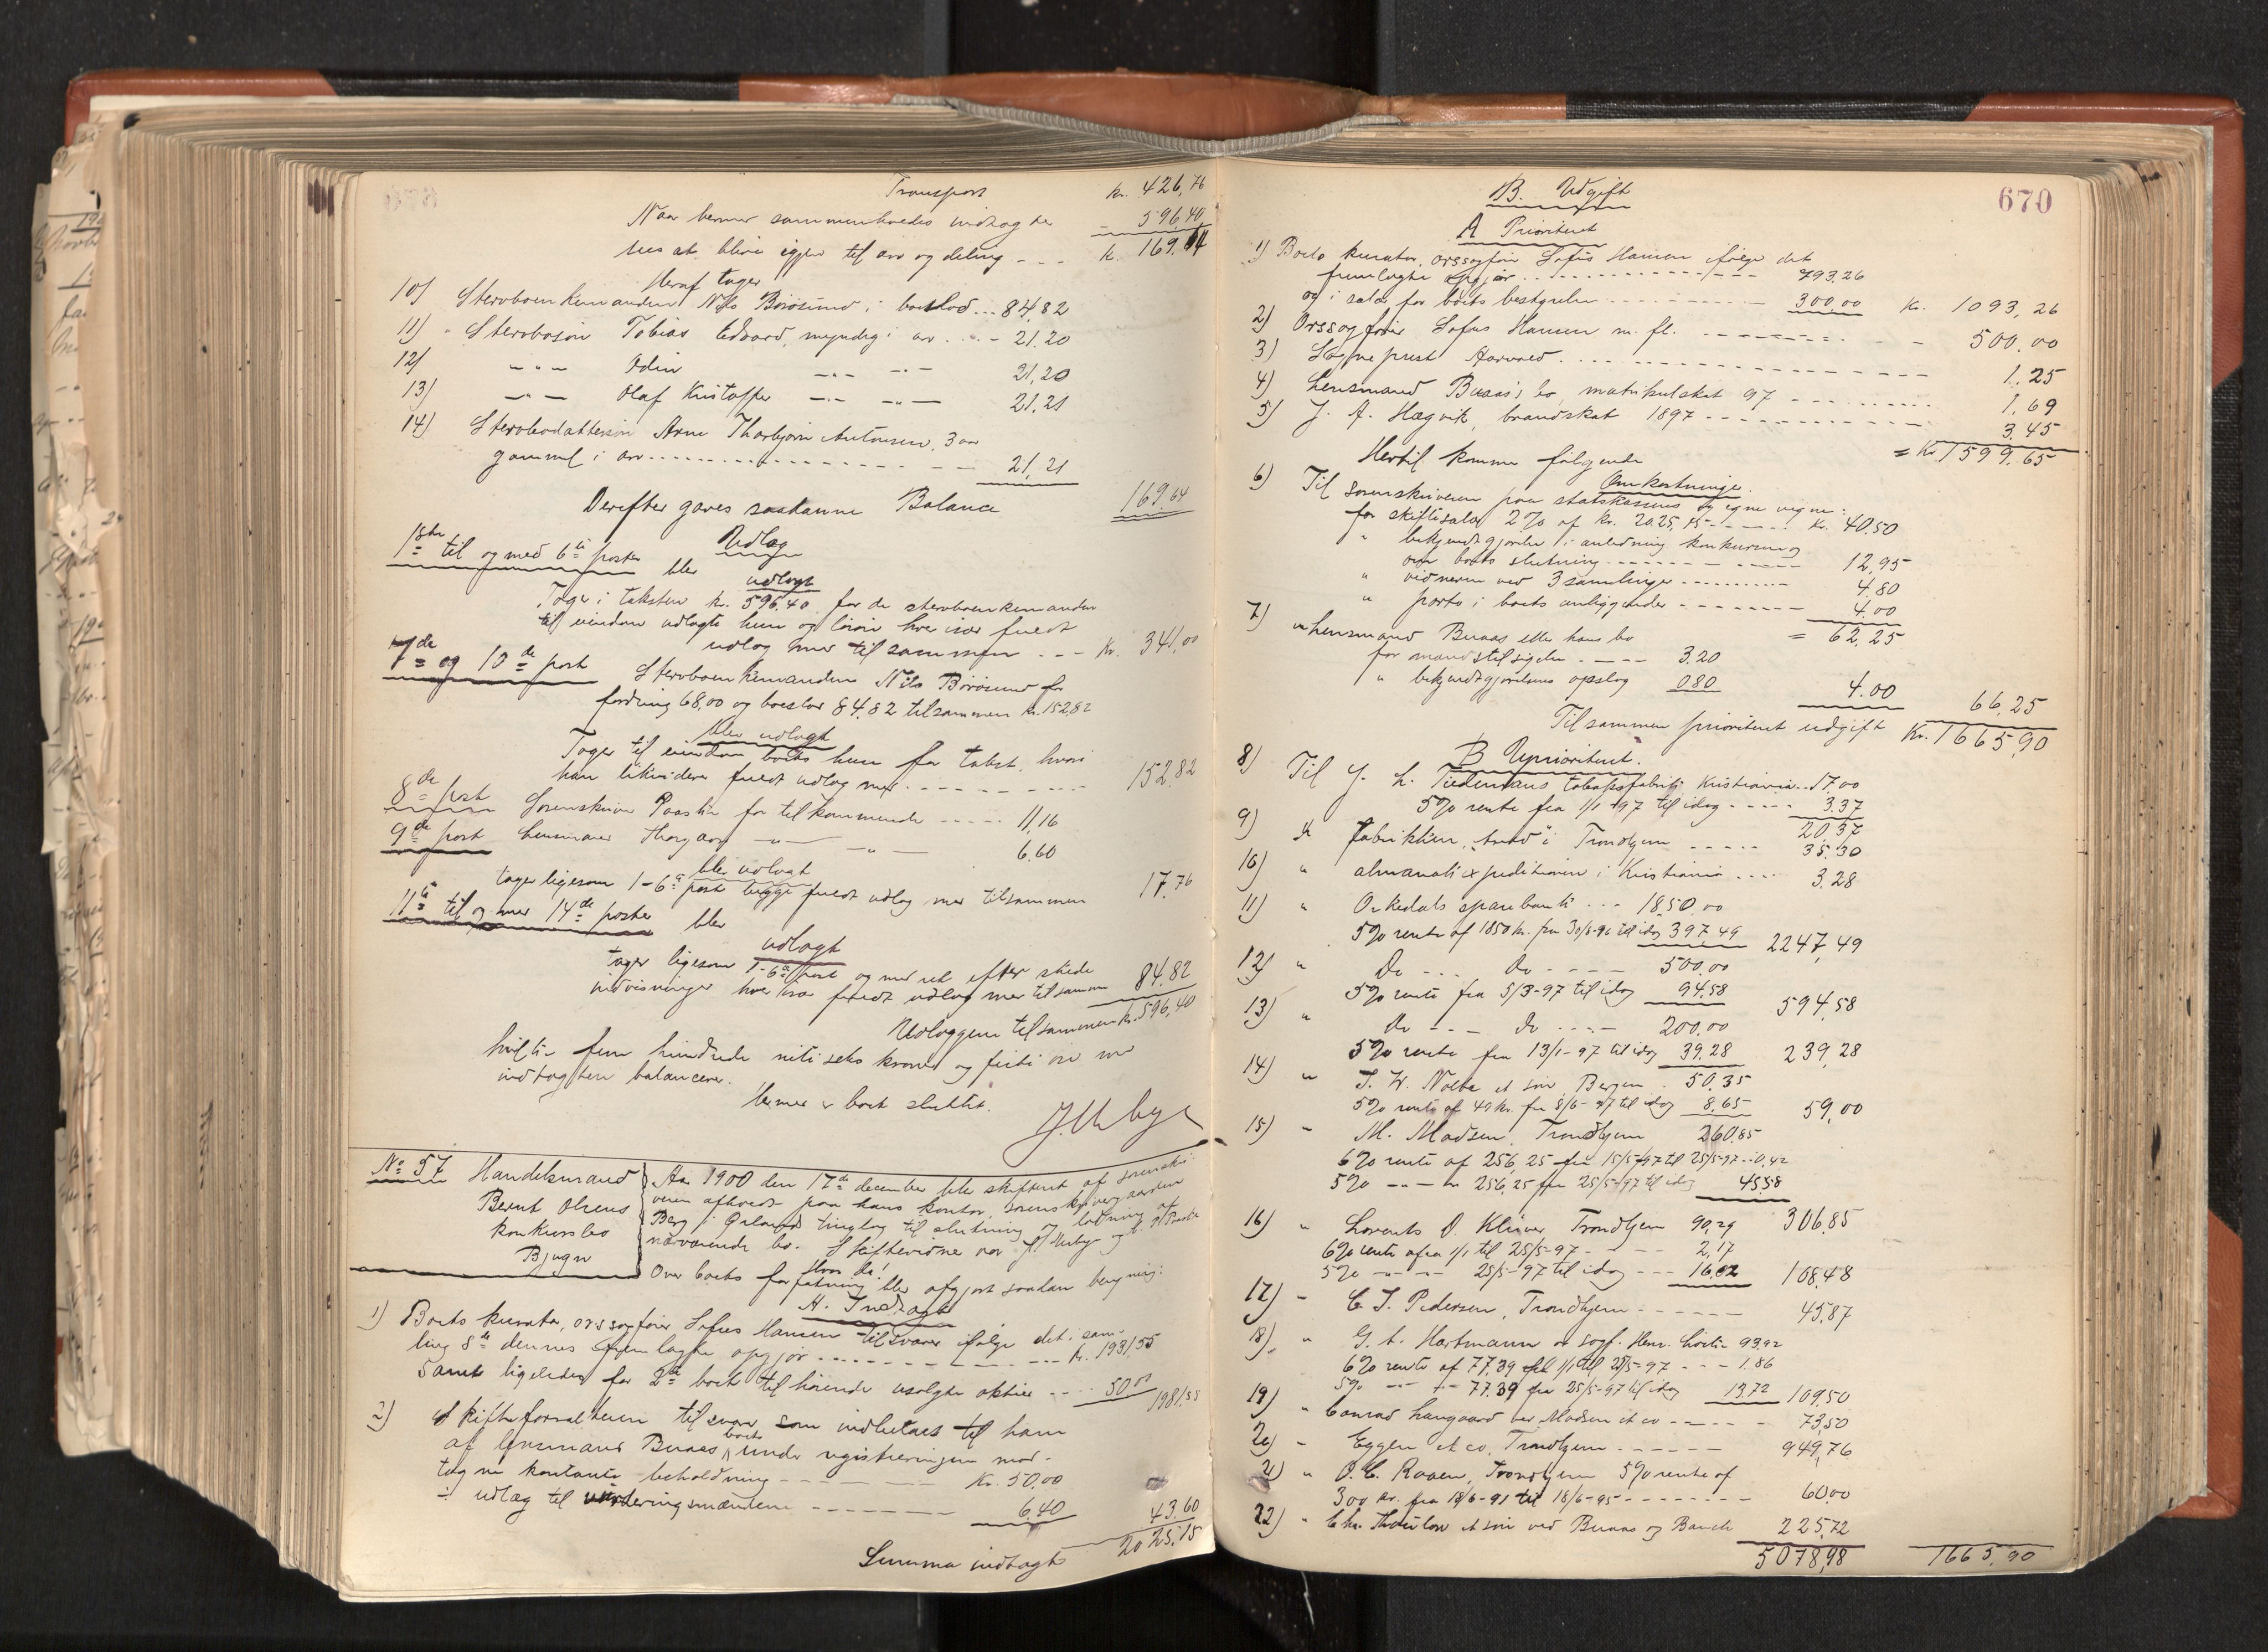 Transport kr. 426,76
Naar hermed sammenholdes indtægten - 596,40
sees at blive igjen til arv og deling - - - kr. 169.64
Heraf tager
10) Sterboenkemanden Nils Börösund i boeslod ... 84,82
11) " Stervbosön Tobias Edvard, myndig i arv . . . - 21.20
12) - " - Odin - " - - " - 21,20
13) - " - Olaf Kristoffer - " - - " - 21,21
14) Stervbodattersön Arne Thorbjörn Antonsen, 3 aar
gammel i arv - - - - - - 21,21
169.64
Derefter gaves saadanne Balance
Udlæg
1ste til og med 6te poster blev
udlagt
Tager i taksten kr. 596,40 for de stervboenkemanden
til eiendom udlagte hus og lösöre hver især fuldt
udlæg med tilsammen - - - Kr. 341,00
7de og 10de post Stervboenkemanden Nils Börösund for
fordring 68,00 og boeslod 84,82 tilsammen kr. 152,82
blev udlagt
Tager til eiendom boets huse for takst, hvori
han likviderer fuldt udlæg med - - - - - 152.82
8de post Sorenskriver Paaske for tilkommende - - - - - 11,16
9de post Lensmand Thorgard - " - - " - 6.60
blev udlagt
tager ligesom 1-6te post begge fuldt udlæg med tilsammen 17.76
11te til og med 14de poster blev
udlagt
tager ligesom 1-6te post og med ret efter skede
indvisninger hver især fuldt udlæg med tilsammen 84.82
Udlæggene tilsammen kr. 596,40
hvilke fem hundrede nitiseks kroner og firti öre med
indtægten balancerer.
Hermed er boet sluttet.
No 57 Handelsmand
Bernt Olsens
konkursbo
Bjugn
Aar 1900 den 17de december blev skifteret af sorenskri-
veren afholdt paa hans kontor, sorenskrivergaarden
Berg i Ørlands tinglag til slutning og lodning af
nærværende bo. Skiftevidner var
Hvor da!
Over boets forfatning blev afgjort saadan beregning:
A. Indtægt
1) Boets kurator, ovssagförer Sofus Hansen tilsvarer ifölge det i sam-
ling 8de dennes fremlagte opgjör - - - - - - kr. 1931,55
samt ligeledes for 2de boet tilhörende usolgte aktier - - - 50.00 1981,55
2) Skifteforvalteren tilsvarer som indbetalt til ham
af lensmand Buaas boets under registreringen mod-
tagne kontante beholdning - - - - Kr. 50,00
÷ udlæg til vurderingsmændene - - - - - 6,40 43.60
Summa indtægt 2025,15
670
B. Udgift
A Prioriteret
1) Boets kurator, ovssagförer Sofus Hansen ifölge det
fremlagte opgjör - - - - - 793.26
og i salær for boets bestyrelse - - - - - 300,00 Kr. 1093,26
2) Ovssagförer Sofus Hansen m. fl. - - - - - - 500.00
3) Sogneprest Aarvaed - - - - - 1,25
4) Lensmand Buaas's bo, matrikulskat 97 - - - - - 1,69
5) J. A. Hægvik, brandskat 1897 - - - - - 3.45
= Kr 1599.65
Hertil kommer fölgende
Omkostninger.
6) Til sorenskriveren paa statskassens og egne vegne:
for skiftesalær 2% af kr. 2025,15 - - - - kr. 40.50
" bekjendtgjörelse i anledning konkursen og
om boets slutning - - - - - 12,95
" vidnerne ved 3 samlinger - - - - - 4.80
" porto i boets anliggender - - - - - 4.00
= 62.25
7) " Lensmand Buaas eller hans bo
for mandstilsigelse - - - - 3.20
" bekjendtgjörelsens opslag 0.80 4.00 66,25
Tilsammen prioriteret udgift Kr. 1665,90
B Uprioriteret.
8) Til J. L. Tiedemans tobaksfabrik, Kristiania . . 17.00
5% rente fra 1/1-97 til idag - - - - - 3.37
20.37
9) " Fabrikken i Trondhjem - - - - - 35.30
10) " almanakexpeditionen i Kristiania - - - - 3.28
11) " Orkedals sparebank - - - 1850.00
5% rente af 1850 kr. fra 30/8-96 til idag 397,49 2247,49
12) " Do - - - Do - - - - 500.00
5% rente fra 5/3-97 til idag 94.58 594,58
13) " Do - - - Do - - - - 200.00
5% rente fra 13/1-97 til idag 39.28 239,28
14) " J. W. Nolte et sön, Bergen . 50.35
5% rente af 49 kr. fra 8/6-97 til idag 8,65 59,00
15) " M. Madsen, Trondhjem 260.85
6% rente af 256,25 fra 15/5-97 til 25/5-97 - 0,42
5% - " - " 256,25 fra 25/5-97 til idag 45.58 306.85
16) " Lorents D. Klüver Trondhjem 90,29
6% rente fra 1/1 til 25/5-97 - - - - 2,17
5% - " - 25/5-97 til idag - - - 16.02 108.48
17) - C. J. Pedersen, Trondhjem - - - - - - 45.87
18) " G. A. Hartmann ved sagf. Henr. 93.92
6% rente af 77,39 fra 1/1 til 25/5-97 - - - 1.86
5% - " - 77.39 fra 25/5-97 til idag 13.72 109,50
19) " Conrad Langaard ved Madsen et co - - - - 73.50
20) - Eggen et co, Trondhjem - - - - - - 949,76
21) " O. C. Raaen, Trondhjem 5% rente af
300 kr. fra 18/6-91 til 18/6-95 - - - - - - 60.00
22) " Chr. Thaulow et sön ved Buaas og Bauck 225,72
5078,98 1665,90